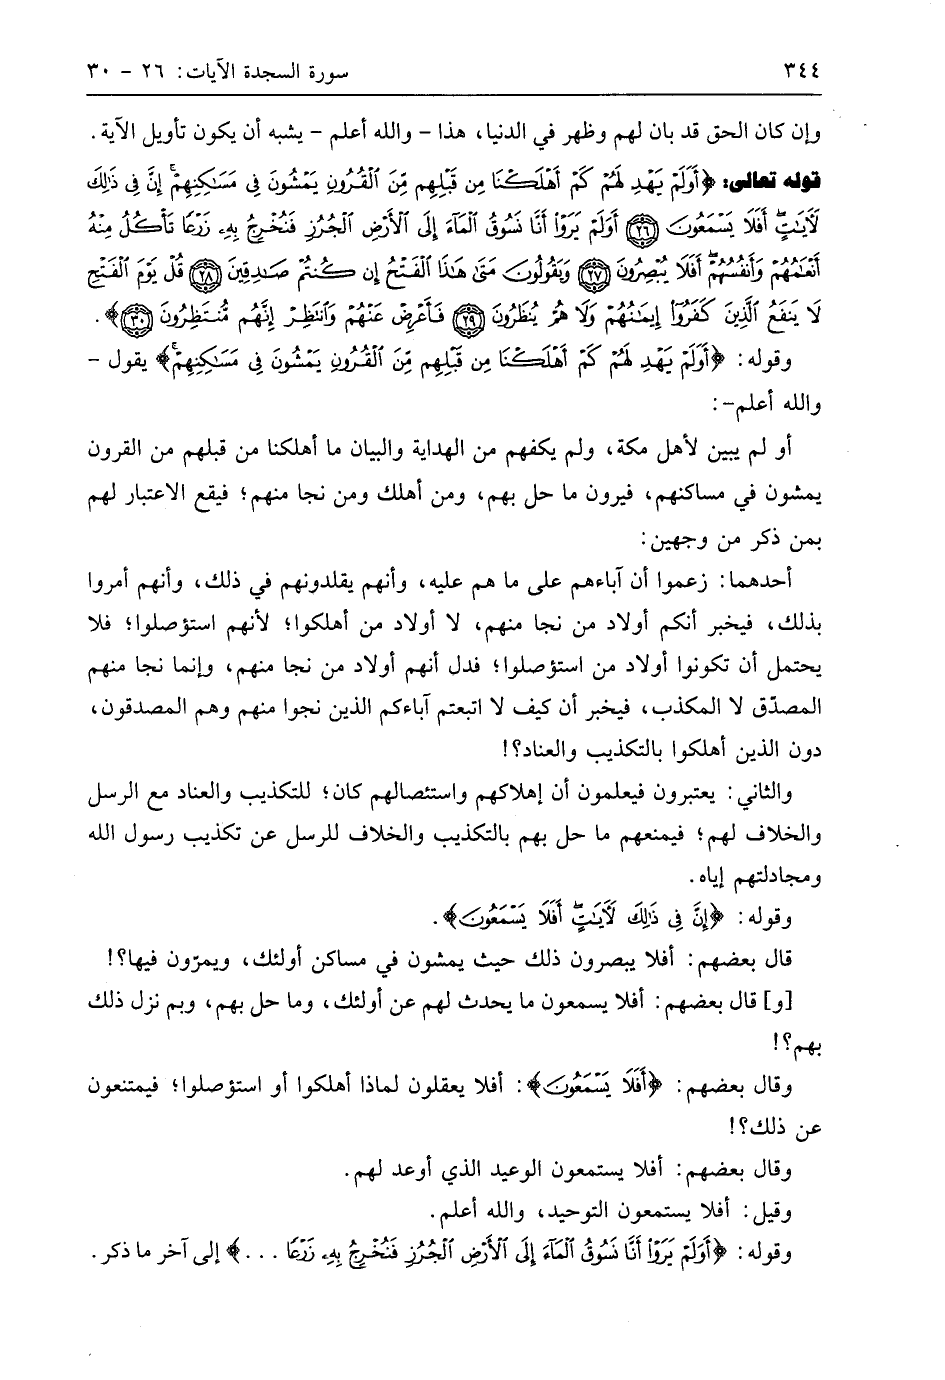 ٣٤٤ سورة السجدة الآيات: ٢٦ - ٣٠
وإن كان الحق قد بان لهم وظهر في الدنيا، هذا - والله أعلم - يشبه أن يكون تأويل الآية.
قوله تعالى: ﴿أَوَلَمْ يَهْدِ لَهُمْ كَمْ أَهْلَكْنَا مِن قَبْلِهِم مِّنَ ٱلْقُرُونِ يَمْشُونَ فِى مَسَٰكِنِهِمْ ۚ إِنَّ فِى ذَٰلِكَ
لَءَايَٰتٍ ۖ أَفَلَا يَسْمَعُونَ ﴿٢٦﴾ أَوَلَمْ يَرَوْا۟ أَنَّا نَسُوقُ ٱلْمَآءَ إِلَى ٱلْأَرْضِ ٱلْجُرُزِ فَنُخْرِجُ بِهِۦ زَرْعًا تَأْكُلُ مِنْهُ
أَنْعَٰمُهُمْ وَأَنفُسُهُمْ ۖ أَفَلَا يُبْصِرُونَ ﴿٢٧﴾ وَيَقُولُونَ مَتَىٰ هَٰذَا ٱلْفَتْحُ إِن كُنتُمْ صَٰدِقِينَ ﴿٢٨﴾ قُلْ يَوْمَ ٱلْفَتْحِ
لَا يَنفَعُ ٱلَّذِينَ كَفَرُوٓا۟ إِيمَٰنُهُمْ وَلَا هُمْ يُنظَرُونَ ﴿٢٩﴾ فَأَعْرِضْ عَنْهُمْ وَٱنتَظِرْ إِنَّهُم مُّنتَظِرُونَ ﴿٣٠﴾﴾.
وقوله: ﴿أَوَلَمْ يَهْدِ لَهُمْ كَمْ أَهْلَكْنَا مِن قَبْلِهِم مِّنَ ٱلْقُرُونِ يَمْشُونَ فِى مَسَٰكِنِهِمْ ۚ﴾ يقول -
والله أعلم-:
أو لم يبين لأهل مكة، ولم يكفهم من الهداية والبيان ما أهلكنا من قبلهم من القرون
يمشون في مساكنهم، فيرون ما حل بهم، ومن أهلك ومن نجا منهم؛ فيقع الاعتبار لهم
بمن ذكر من وجهين:
أحدهما: زعموا أن آباءهم على ما هم عليه، وأنهم يقلدونهم في ذلك، وأنهم أمروا
بذلك، فيخبر أنكم أولاد من نجا منهم، لا أولاد من أهلكوا؛ لأنهم استؤصلوا؛ فلا
يحتمل أن تكونوا أولاد من استؤصلوا؛ فدل أنهم أولاد من نجا منهم، وإنما نجا منهم
المصدّق لا المكذب، فيخبر أن كيف لا اتبعتم آباءكم الذين نجوا منهم وهم المصدقون،
دون الذين أهلكوا بالتكذيب والعناد؟!
والثاني: يعتبرون فيعلمون أن إهلاكهم واستئصالهم كان؛ للتكذيب والعناد مع الرسل
والخلاف لهم؛ فيمنعهم ما حل بهم بالتكذيب والخلاف للرسل عن تكذيب رسول الله
ومجادلتهم إياه.
وقوله: ﴿إِنَّ فِى ذَٰلِكَ لَءَايَٰتٍ ۖ أَفَلَا يَسْمَعُونَ﴾.
قال بعضهم: أفلا يبصرون ذلك حيث يمشون في مساكن أولئك، ويمرّون فيها؟!
[و] قال بعضهم: أفلا يسمعون ما يحدث لهم عن أولئك، وما حل بهم، وبم نزل ذلك
بهم؟!
وقال بعضهم: ﴿أَفَلَا يَسْمَعُونَ﴾: أفلا يعقلون لماذا أهلكوا أو استؤصلوا؛ فيمتنعون
عن ذلك؟!
وقال بعضهم: أفلا يستمعون الوعيد الذي أوعد لهم.
وقيل: أفلا يستمعون التوحيد، والله أعلم.
وقوله: ﴿أَوَلَمْ يَرَوْا۟ أَنَّا نَسُوقُ ٱلْمَآءَ إِلَى ٱلْأَرْضِ ٱلْجُرُزِ فَنُخْرِجُ بِهِۦ زَرْعًا ...﴾ إلى آخر ما ذكر.